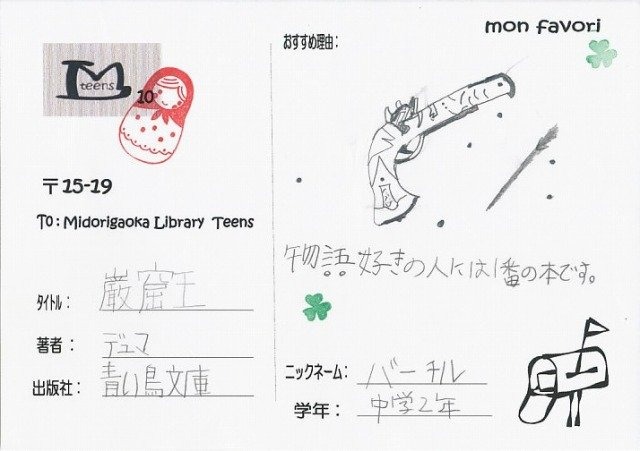 M
teens
10
〒15-19
To: Midorigaoka Library Teens
タイトル: 巌窟王
著者: デュマ
出版社: 青い鳥文庫
mon favori
おすすめ理由:
物語好きの人には1番の本です。
ニックネーム: バーチル
学年: 中学2年